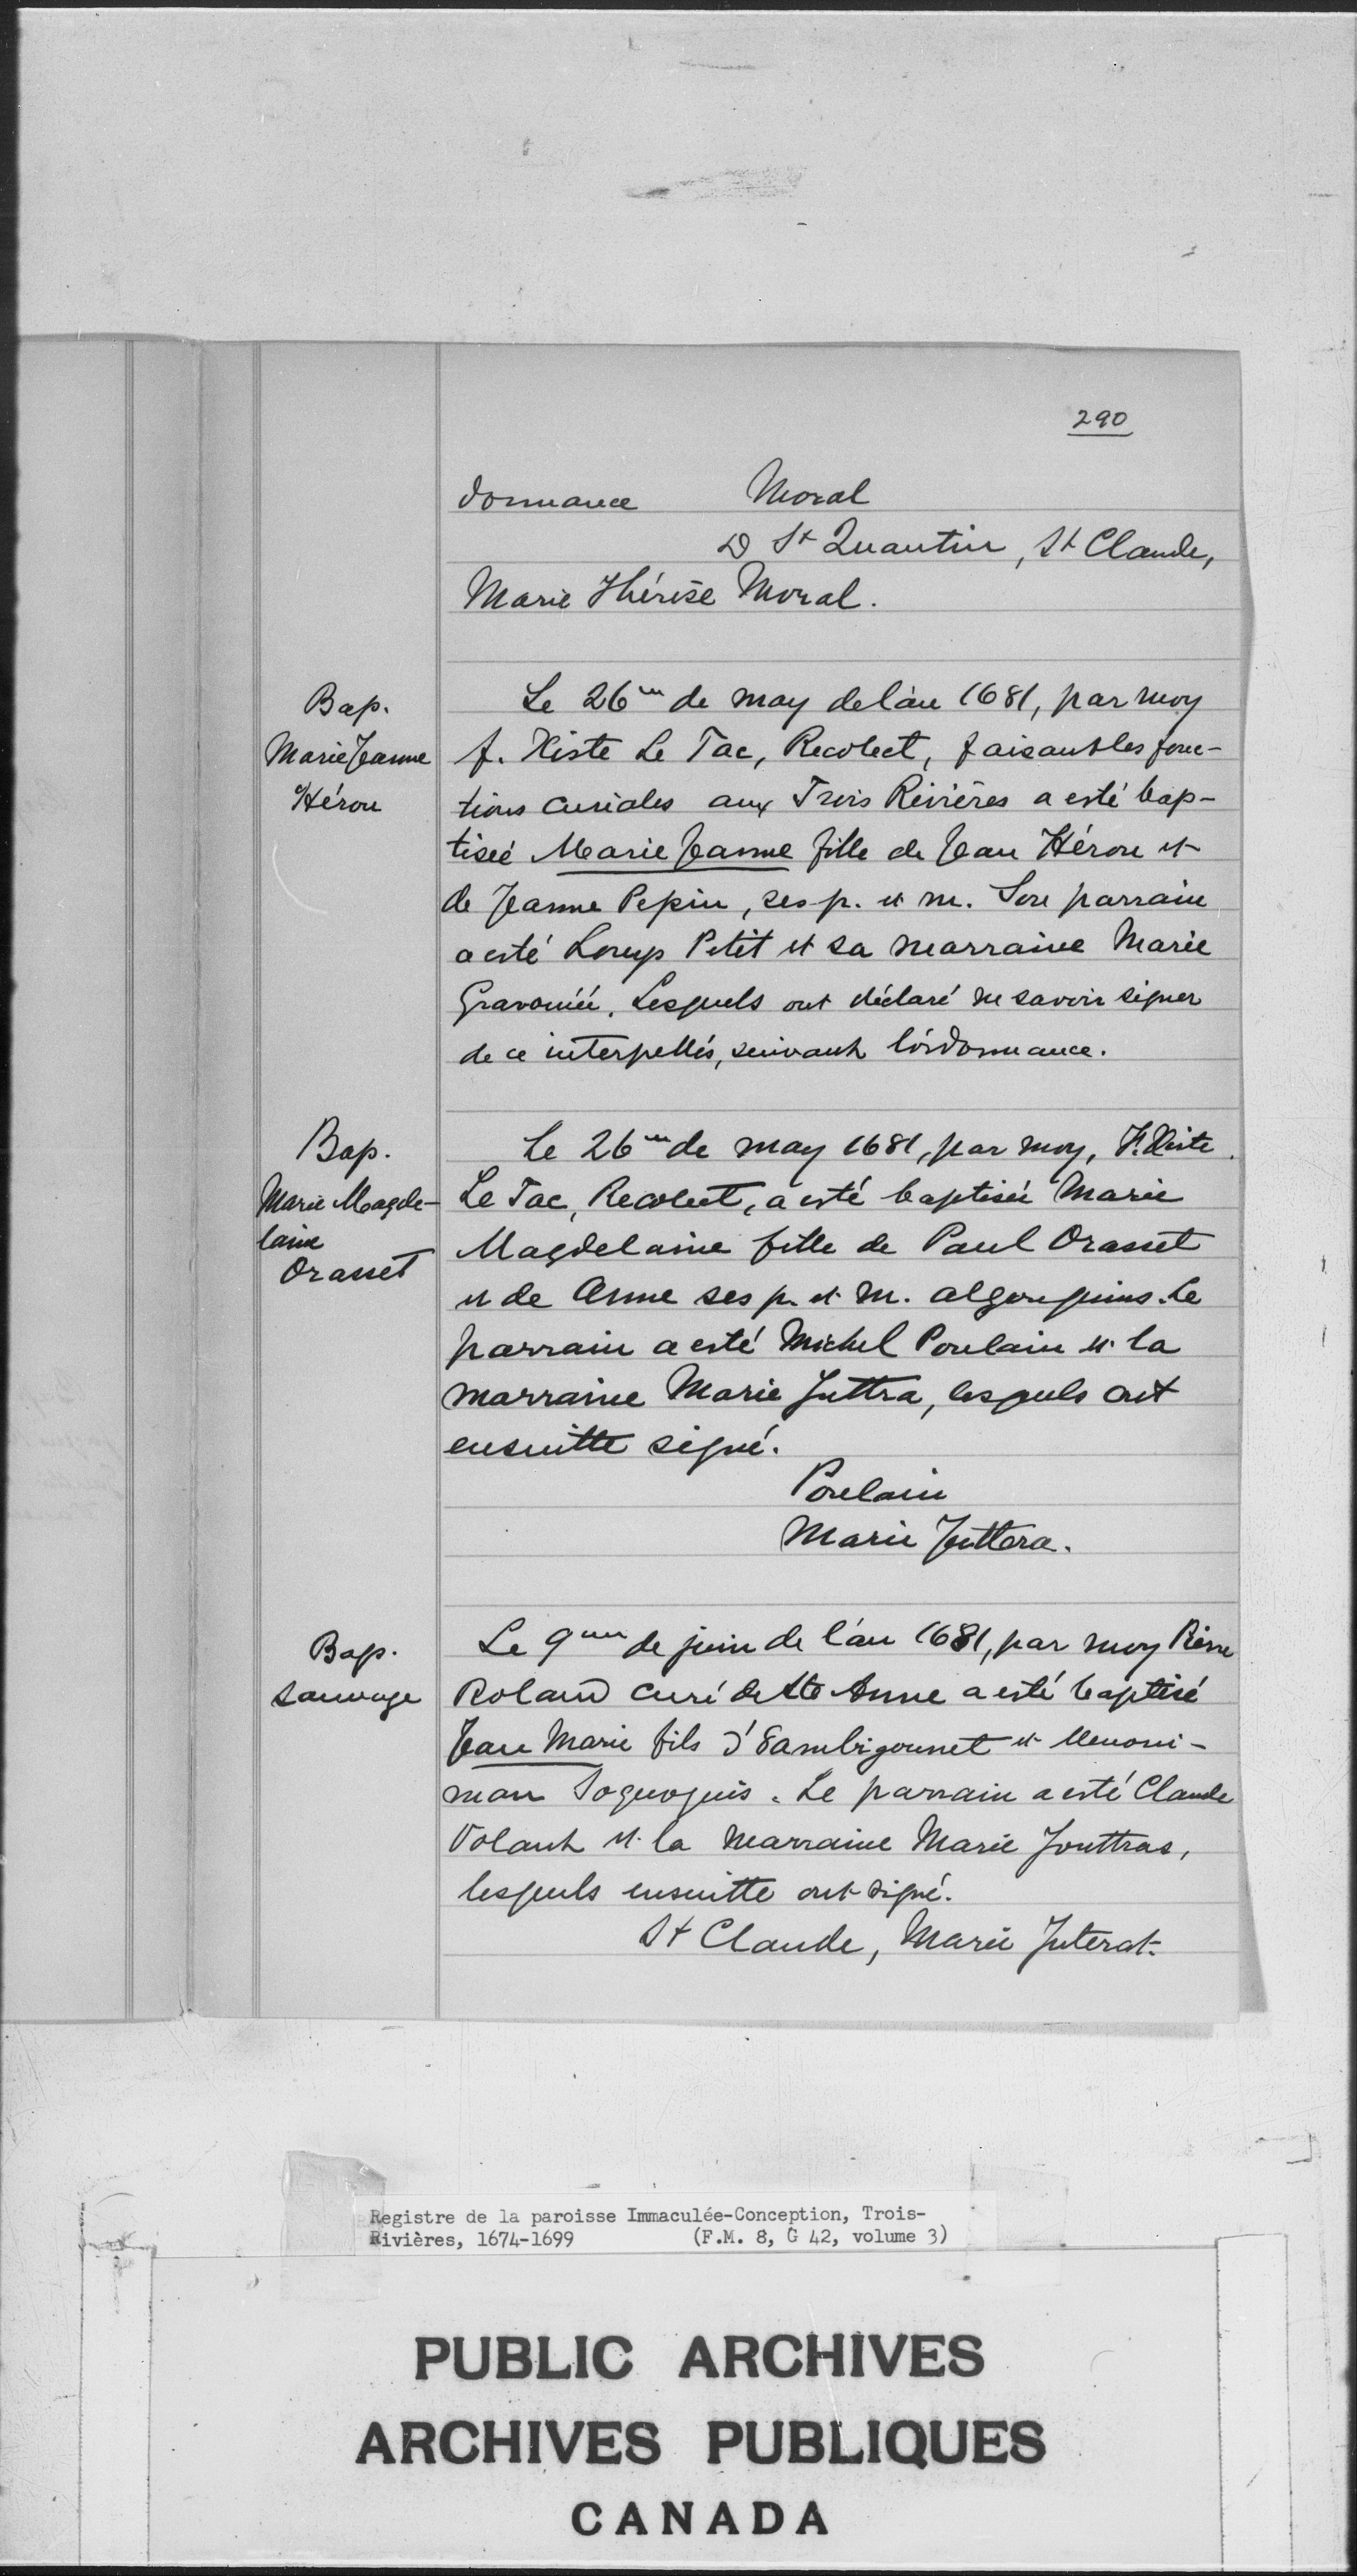 290
donnance Moral
D St Quantin, St Claude,
Marie Thérèse Moral.
Bap.
Marie Jeanne
Hérou
Le 26me de may de l'an 1681, par moy
f. Xiste Le Tac, Recolect, faisant les fonc-
tions curiales aux Trois Rivières a esté bap-
tiseé Marie Jeanne fille de Jean Hérou et
de Jeanne Pepin, ses p. et m. Son parrain
a esté Louys Petit et sa marraine Marie
Lesquels ont déclaré ne savoir signer
de ce interpellés, suivant l'ordonnance.
Bap.
Marie Magde-
laine
Orasset
Le 26me de may 1681, par moy, F. Xiste
Le Tac, Recolect, a esté baptisée Marie
Magdelaine fille de Paul Orasset
et de Anne ses p. et m. algonquins. Le
parrain a esté Michel Poulain et la
marraine Marie Juttra, lesquels ont
ensuitte signé.
Poulain
Marie Juttera.
Bap.
Sauvage
Le 9me de juin de l'an 1681, par moy Pierre
Roland curé de Ste Anne a esté baptisé
Jean Marie fils d'8ambigounet et Menoni-
man Soquoquis. Le parrain a esté Claude
Volant et la marraine Marie Jouttras,
lesquels ensuitte ont signé.
St Claude, Marie Juterat.
Registre de la paroisse Immaculée-Conception, Trois-
Rivières, 1674-1699 (F.M. 8, G 42, volume 3)
PUBLIC ARCHIVES
ARCHIVES PUBLIQUES
CANADA